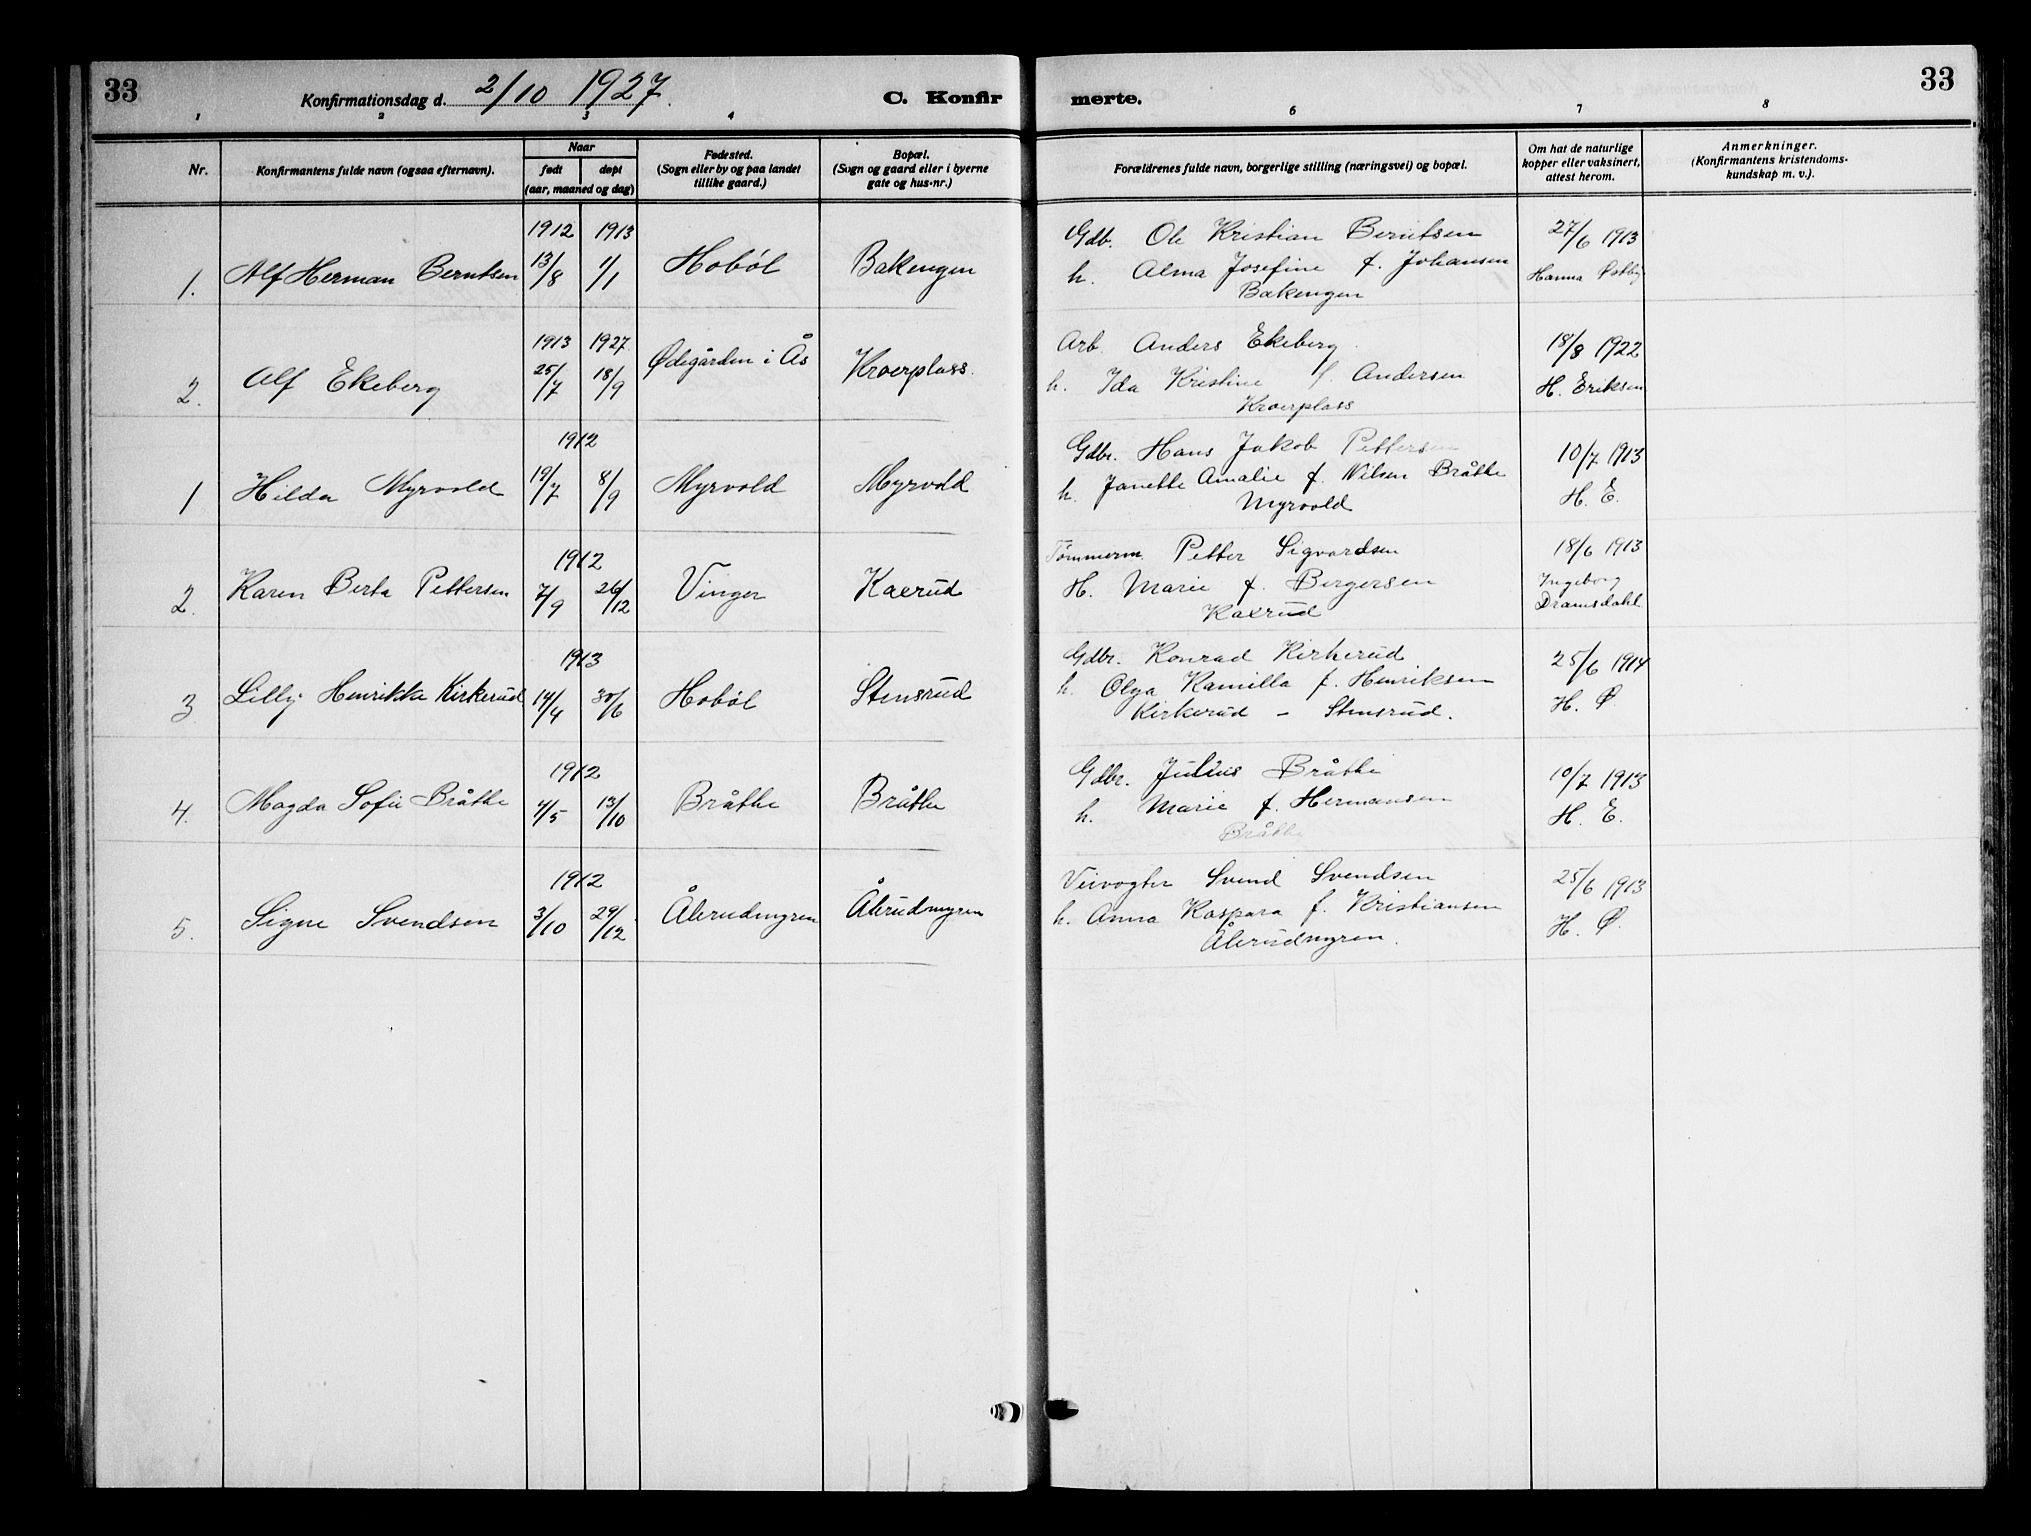 33
Konfirmationsdag d. 2/10 1927.
C. Konfir
merte.
33
1 2 3 4 6 7 8
Nr.
Konfirmantens fulde navn (ogsaa efternavn).
Naar
født
døpt
(aar, maaned og dag)
Fødested.
(Sogn eller by og paa landet
tillike gaard.)
Bopæl.
(Sogn og gaard eller i byerne
gate og hus-nr.)
Forældrenes fulde navn, borgerlige stilling (næringsvei) og bopæl.
Om hat de naturlige
kopper eller vaksinert,
attest herom.
Anmerkninger.
(Konfirmantens kristendoms-
kundskap m. v.).
1912 1913
1. Alf Herman Berntsen 13/8 1/1 Hobøl Bakengen
Gdb. Ole Kristian Berntsen
h. Alma Josefine f. Johansen
Bakengen
27/6 1913
Hanna Østby
1913 1927
2. Alf Ekeberg 25/7 18/9 Ødegården i Ås Kroerplass.
Arb. Anders Ekeberg
h. Ida Kristine f. Andersen
Kroerplass
18/8 1922
H. Eriksen
1912
1 Hilda Myrvold 19/7 8/9 Myrvold Myrvold
Gdbr. Hans Jakob Pettersen
h. Janette Amalie f. Nilsen Bråthe
Myrvold
10/7 1913
H. E.
1912
2. Karen Berta Pettersen 7/9 26/12 Vinger Kaxrud
Tømmerm. Petter Sigvardsen
H. Marie f. Bergersen
Kaxrud
18/6 1913
Ingeborg
Dramsdahl
1913
3 Lilly Henrikka Kirkerud 14/4 30/6 Hobøl Stensrud
Gdbr. Konrad Kirkerud
h. Olga Kamilla f. Henriksen
Kirkerud - Stensrud.
25/6 1914
H. Ø.
1912
4. Magda Sofie Bråthe 4/5 13/10 Bråthe Bråthe
Gdbr. Julius Bråthe
h. Marie f. Hermansen
Bråthe
10/7 1913
H. E.
1912
5. Signe Svendsen 3/10 29/12 Ålerudmyren Ålerudmyren
Veivogter Svend Svendsen
h. Anna Kaspara f. Kristiansen
Ålerudmyren.
25/6 1913
H. Ø.